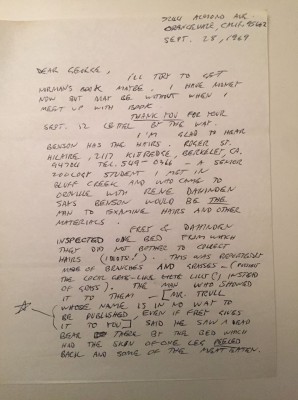 ALMOND AVE.
ORANGEVALE, CALIF.
SEPT. 28, 1969
DEAR GEORGE,
I'LL TRY TO GET
BOOK MAYBE. I HAVE MONEY
NOW BUT MAY BE WITHOUT WHEN I
MEET UP WITH BOOK
THANK YOU FOR YOUR
SEPT. 12 LETTER BY THE WAY.
I'M GLAD TO HEAR
BENSON HAS THE HAIRS. ROGER ST.
HILAIRE, 2117 KITREDGE, BERKELEY, CA.
TEL. 549- — A SENIOR
ZOOLOGY STUDENT I MET IN
BLUFF CREEK AND WHO CAME TO
OROVILLE WITH RENE DAHINDEN
SAYS BENSON WOULD BE THE
MAN TO EXAMINE HAIRS AND OTHER
MATERIALS.
FRET & DAHINDEN
INSPECTED ONE BED FROM WHICH
THEY DID NOT BOTHER TO COLLECT
HAIRS (IDIOTS!). THIS WAS REPORTEDLY
MADE OF BRANCHES AND GRASSES—(
THE INSTEAD
OF GRASS). THE MAN WHO SHOWED
IT TO THEM — [AIR. TRULL
WHOSE NAME IS IN NO WAY TO
BE PUBLISHED, EVEN IF FRET GIVES
IT TO YOU] SAID HE SAW A DEAD
BEAR THERE BY THE BED WHICH
HAD THE SKIN OF ONE LEG PEELED
BACK AND SOME OF THE MEAT EATEN.